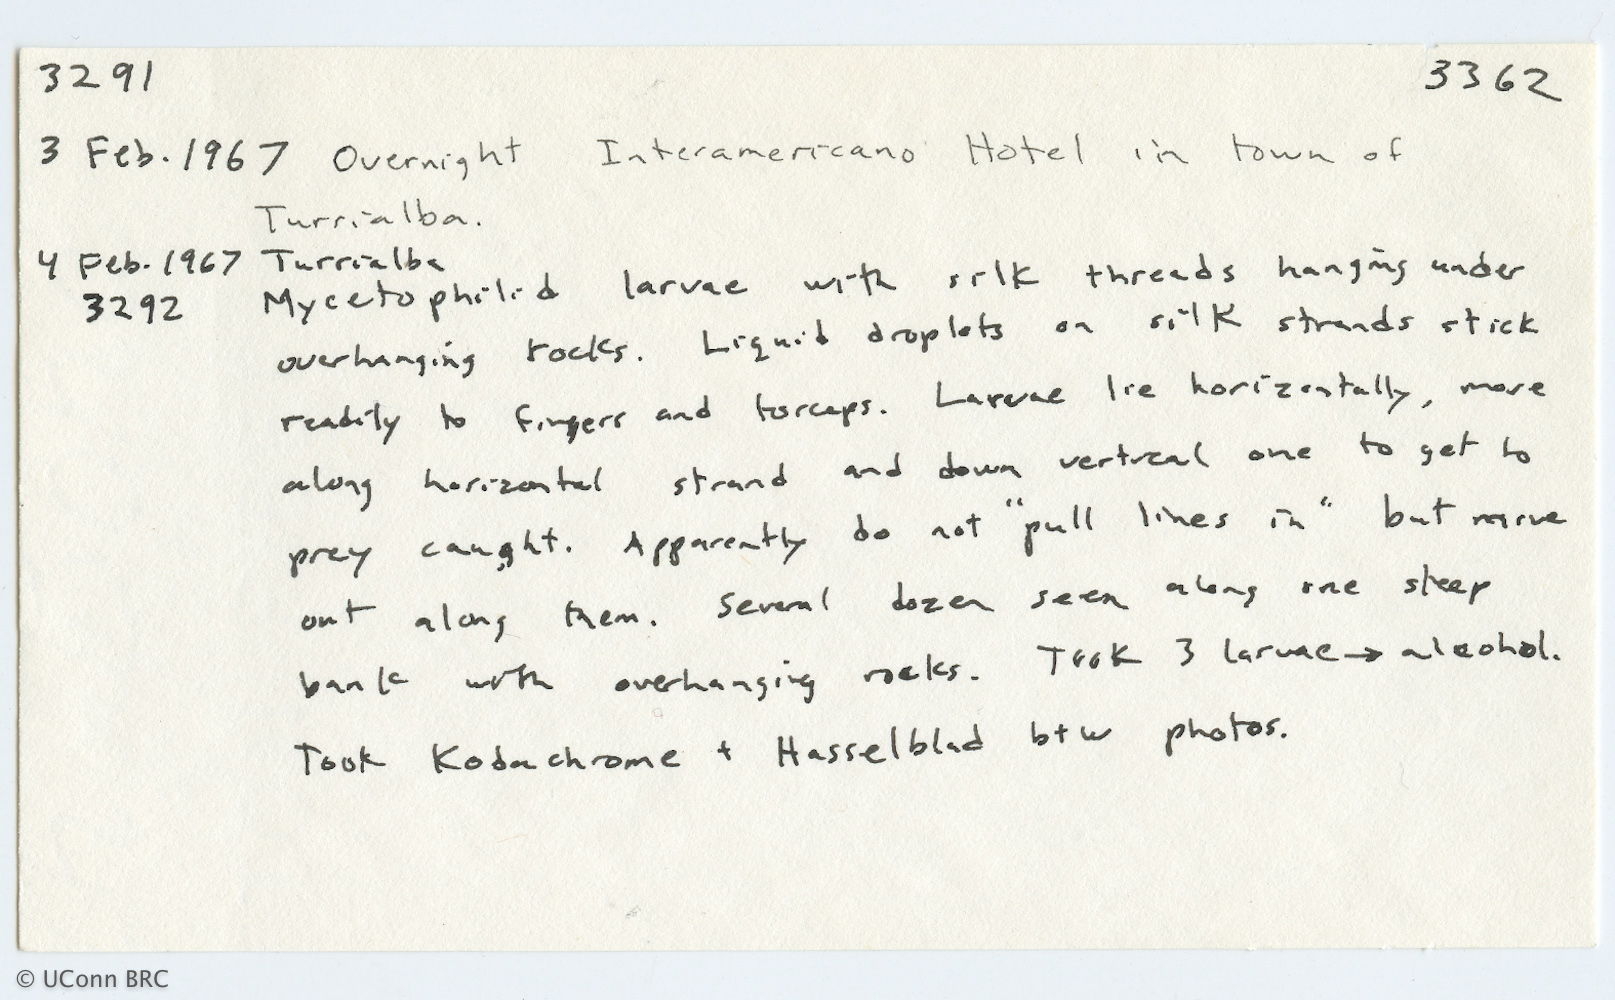 3291 3362
3 Feb. 1967 Overnight Interamericano Hotel in town of
Turrialba.
4 Feb. 1967 Turrialba
3292 Mycetophilid larvae with silk threads hanging under
overhanging rocks. Liquid droplets on silk strands stick
readily to fingers and forceps. Larvae lie horizontally, move
along horizontal strand and down vertical one to get to
prey caught. Apparently do not "pull lines in" but move
out along them. Several dozen seen along one steep
bank with overhanging rocks. Took 3 larvae → alcohol.
Took Kodachrome + Hasselblad b+w photos.
© UConn BRC